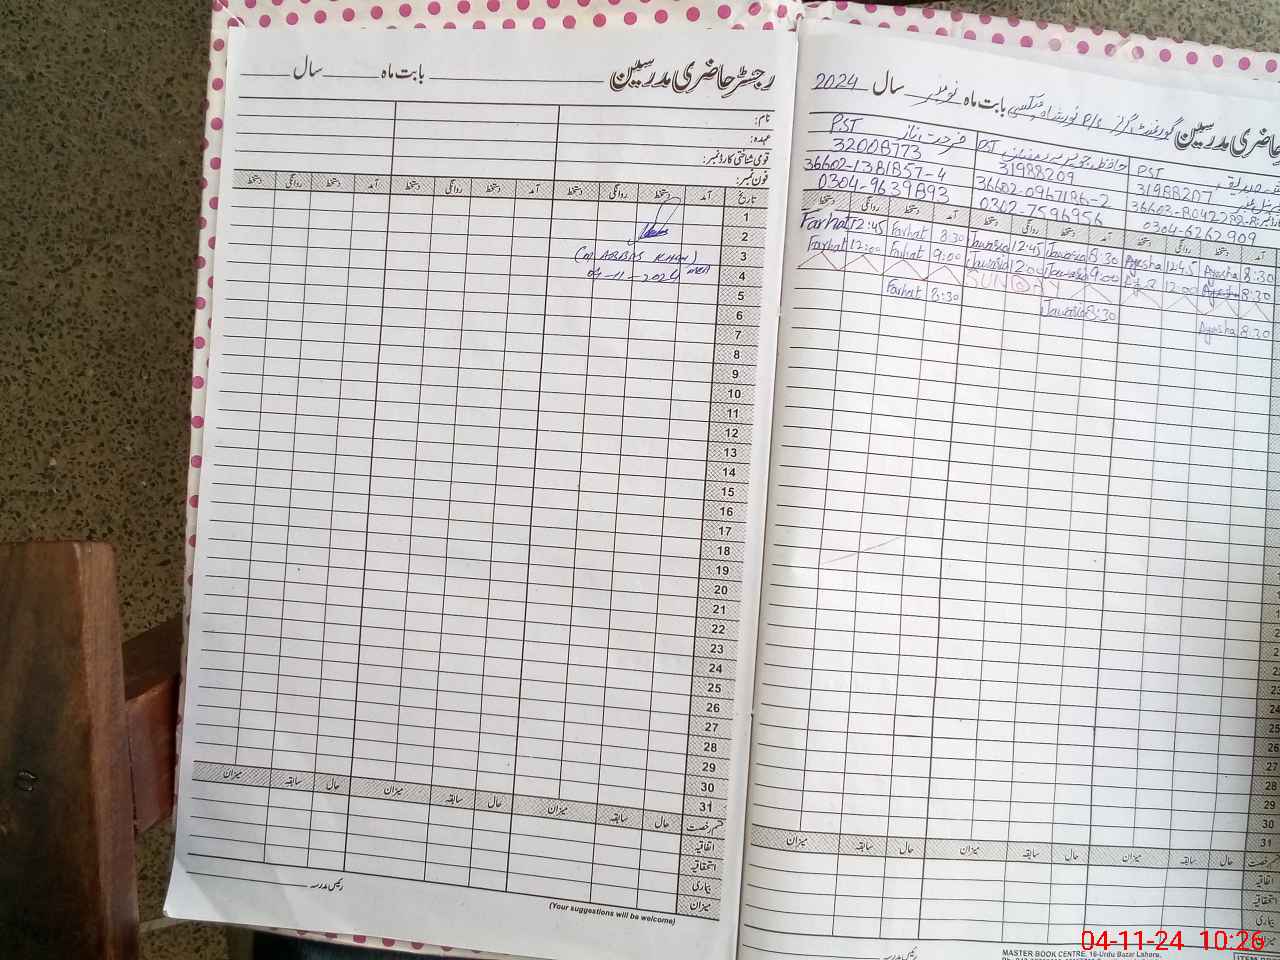 رجسٹر حاضری مدرسین بابت ماہ سال
نام:
عہدہ:
قومی شناختی کارڈ نمبر:
فون نمبر:
تاریخ آمد دستخط روانگی دستخط آمد دستخط روانگی دستخط آمد دستخط روانگی دستخط
1
2
3
(M ABBAS KHAN)
4
04-11-2024
5
6
7
8
9
10
11
12
13
14
15
16
17
18
19
20
21
22
23
24
25
26
27
28
29
30
31
قسم رخصت حال سابقہ میزان حال سابقہ میزان حال سابقہ میزان
اتفاقیہ
استحقاقیہ
بیماری
میزان
رئیس مدرسہ
(Your suggestions will be welcome)
حاضری مدرسین بابت ماہ نومبر سال 2024
PST PST فرحت ناز PST
31988207 31988209 32008773
36602-0967186-2 36602-1381857-4
0304-6262909 0302-7596956 0304-9639893
آمد دستخط روانگی دستخط آمد دستخط روانگی دستخط آمد دستخط روانگی دستخط
Farhat 12:45 Farhat 8:30 Jawaria 12:45 Jawaria 8:30 Ayesha 12:45 Ayesha 8:30
Farhat 12:00 Farhat 9:00 Jawaria 12:00 Jawaria 9:00 12:00 Ayesha 8:30
SUNDAY
Farhat 8:30
Jawaria 8:30
Ayesha 8:30
24
25
26
27
28
29
30
31
حال سابقہ میزان حال سابقہ میزان حال سابقہ میزان
اتفاقیہ
استحقاقیہ
بیماری
میزان
رئیس مدرسہ
MASTER BOOK CENTRE, 16-Urdu Bazar Lahore,
04-11-24 10:26